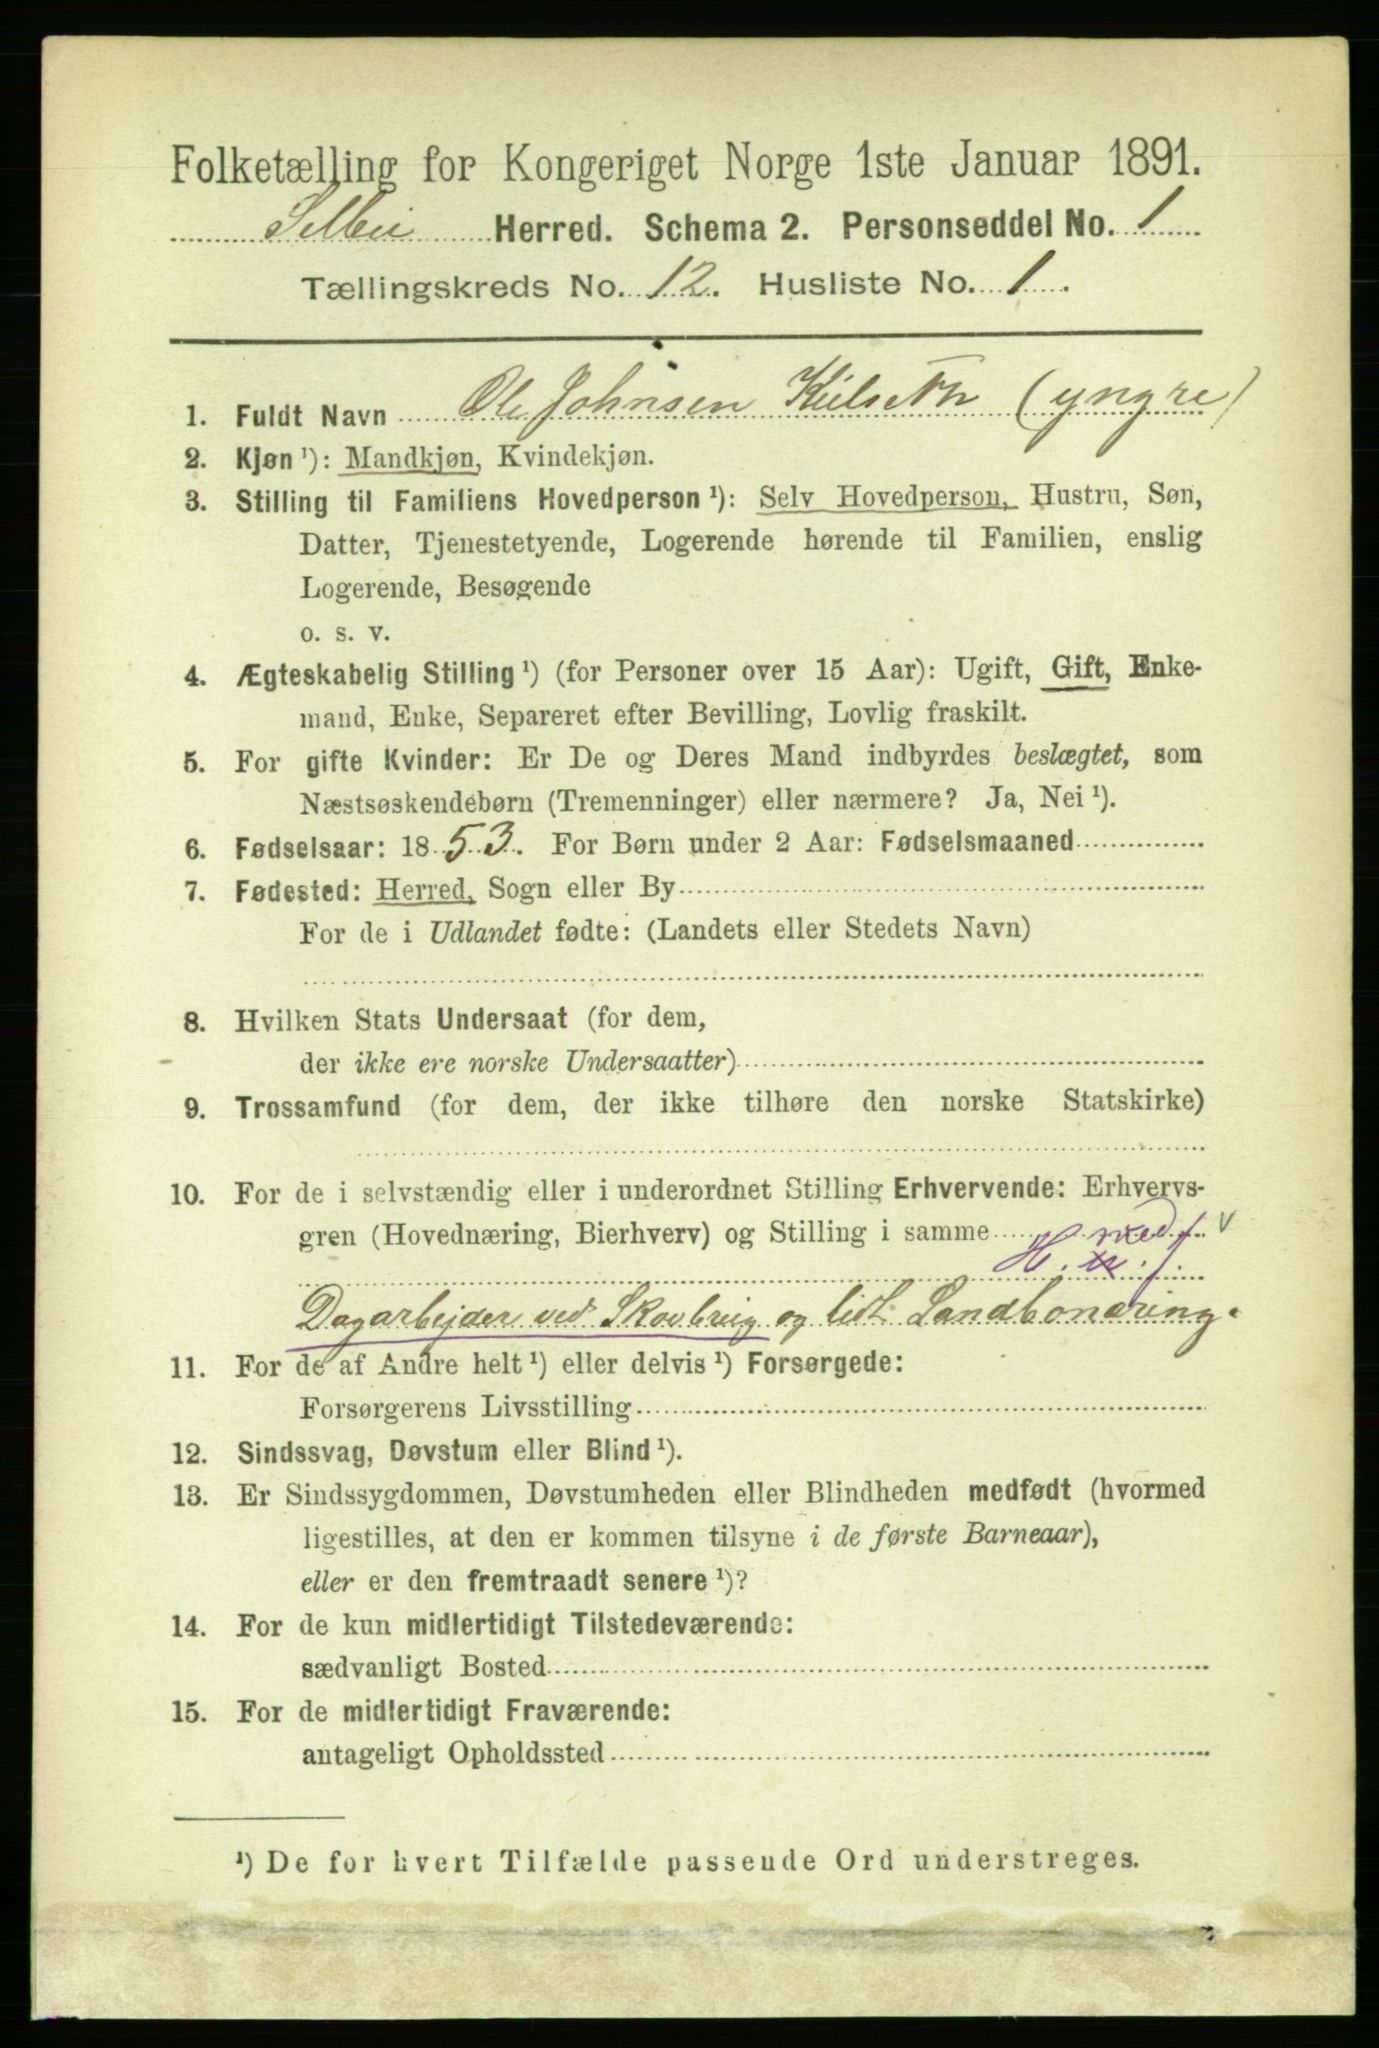 Folketælling for Kongeriget Norge 1ste Januar 1891.
Selbu Herred. Schema 2. Personseddel No. 1
Tællingskreds No. 12. Husliste No. 1.
1. Fuldt Navn Ole Johnsen Kulseth (yngre)
2. Kjøn ¹): Mandkjøn, Kvindekjøn.
3. Stilling til Familiens Hovedperson ¹): Selv Hovedperson, Hustru, Søn,
Datter, Tjenestetyende, Logerende hørende til Familien, enslig
Logerende, Besøgende
o. s. v.
4. Ægteskabelig Stilling ¹) (for Personer over 15 Aar): Ugift, Gift, Enke-
mand, Enke, Separeret efter Bevilling, Lovlig fraskilt.
5. For gifte Kvinder: Er De og Deres Mand indbyrdes beslægtet, som
Næstsøskendebørn (Tremenninger) eller nærmere? Ja, Nei ¹).
6. Fødselsaar: 1853. For Børn under 2 Aar: Fødselsmaaned
7. Fødested: Herred, Sogn eller By
For de i Udlandet fødte: (Landets eller Stedets Navn)
8. Hvilken Stats Undersaat (for dem,
der ikke ere norske Undersaatter)
9. Trossamfund (for dem, der ikke tilhøre den norske Statskirke)
10. For de i selvstændig eller i underordnet Stilling Erhvervende: Erhvervs-
gren (Hovednæring, Bierhverv) og Stilling i samme med f. v
H.
Dagarbejder ved Skovbrug og lidt Landbonæring.
11. For de af Andre helt ¹) eller delvis ¹) Forsørgede:
Forsørgerens Livsstilling
12. Sindssvag, Døvstum eller Blind ¹).
13. Er Sindssygdommen, Døvstumheden eller Blindheden medfødt (hvormed
ligestilles, at den er kommen tilsyne i de første Barneaar),
eller er den fremtraadt senere ¹)?
14. For de kun midlertidigt Tilstedeværende:
sædvanligt Bosted
15. For de midlertidigt Fraværende:
antageligt Opholdssted
¹) De for hvert Tilfælde passende Ord understreges.